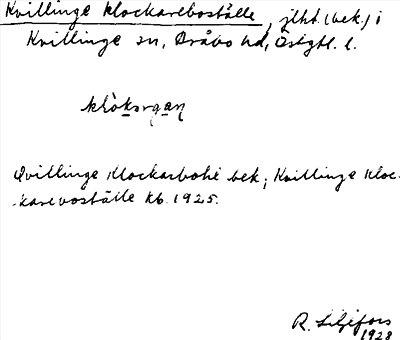 Kvillinge klockareboställe, jlht. (bek.) i
Kvillinge sn, Bråbo hd, Östgtl. l.
Qvillinge Klockarbohl bek; Kvillinge Kloc-
kareboställe kb. 1925.
R. Liljefors
1928